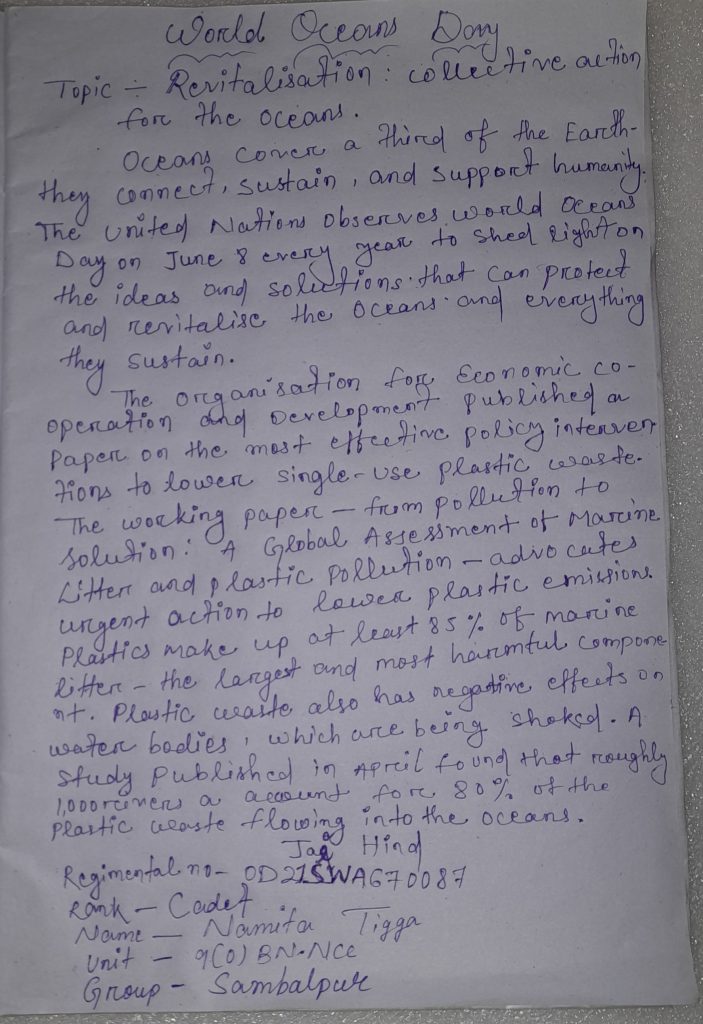 World Oceans Day
Topic - Revitalisation : collective action
for the oceans.
Oceans cover a third of the Earth-
they connect, sustain, and support humanity.
The United Nations observes world oceans
Day on June 8 every year to shed light on
the ideas and solutions that can protect
and revitalise the oceans and everything
they sustain.
The organisation for Economic co-
operation and Development published a
paper on the most effective policy interven
tions to lower single-use plastic waste.
The working paper - from pollution to
solution: A Global Assessment of Marine
Litter and plastic pollution - advocates
urgent action to lower plastic emissions.
Plastics make up at least 85% of marine
litter - the largest and most harmful compone
nt. Plastic waste also has negative effects on
water bodies, which are being shoked. A
study published in April found that roughly
1,000 rivers a account for 80% of the
plastic waste flowing into the oceans.
Jai Hind
Regimental no- OD21SWA670087
Rank - Cadet
Name - Namita Tigga
Unit - 9(O) BN.NCC
Group - Sambalpur